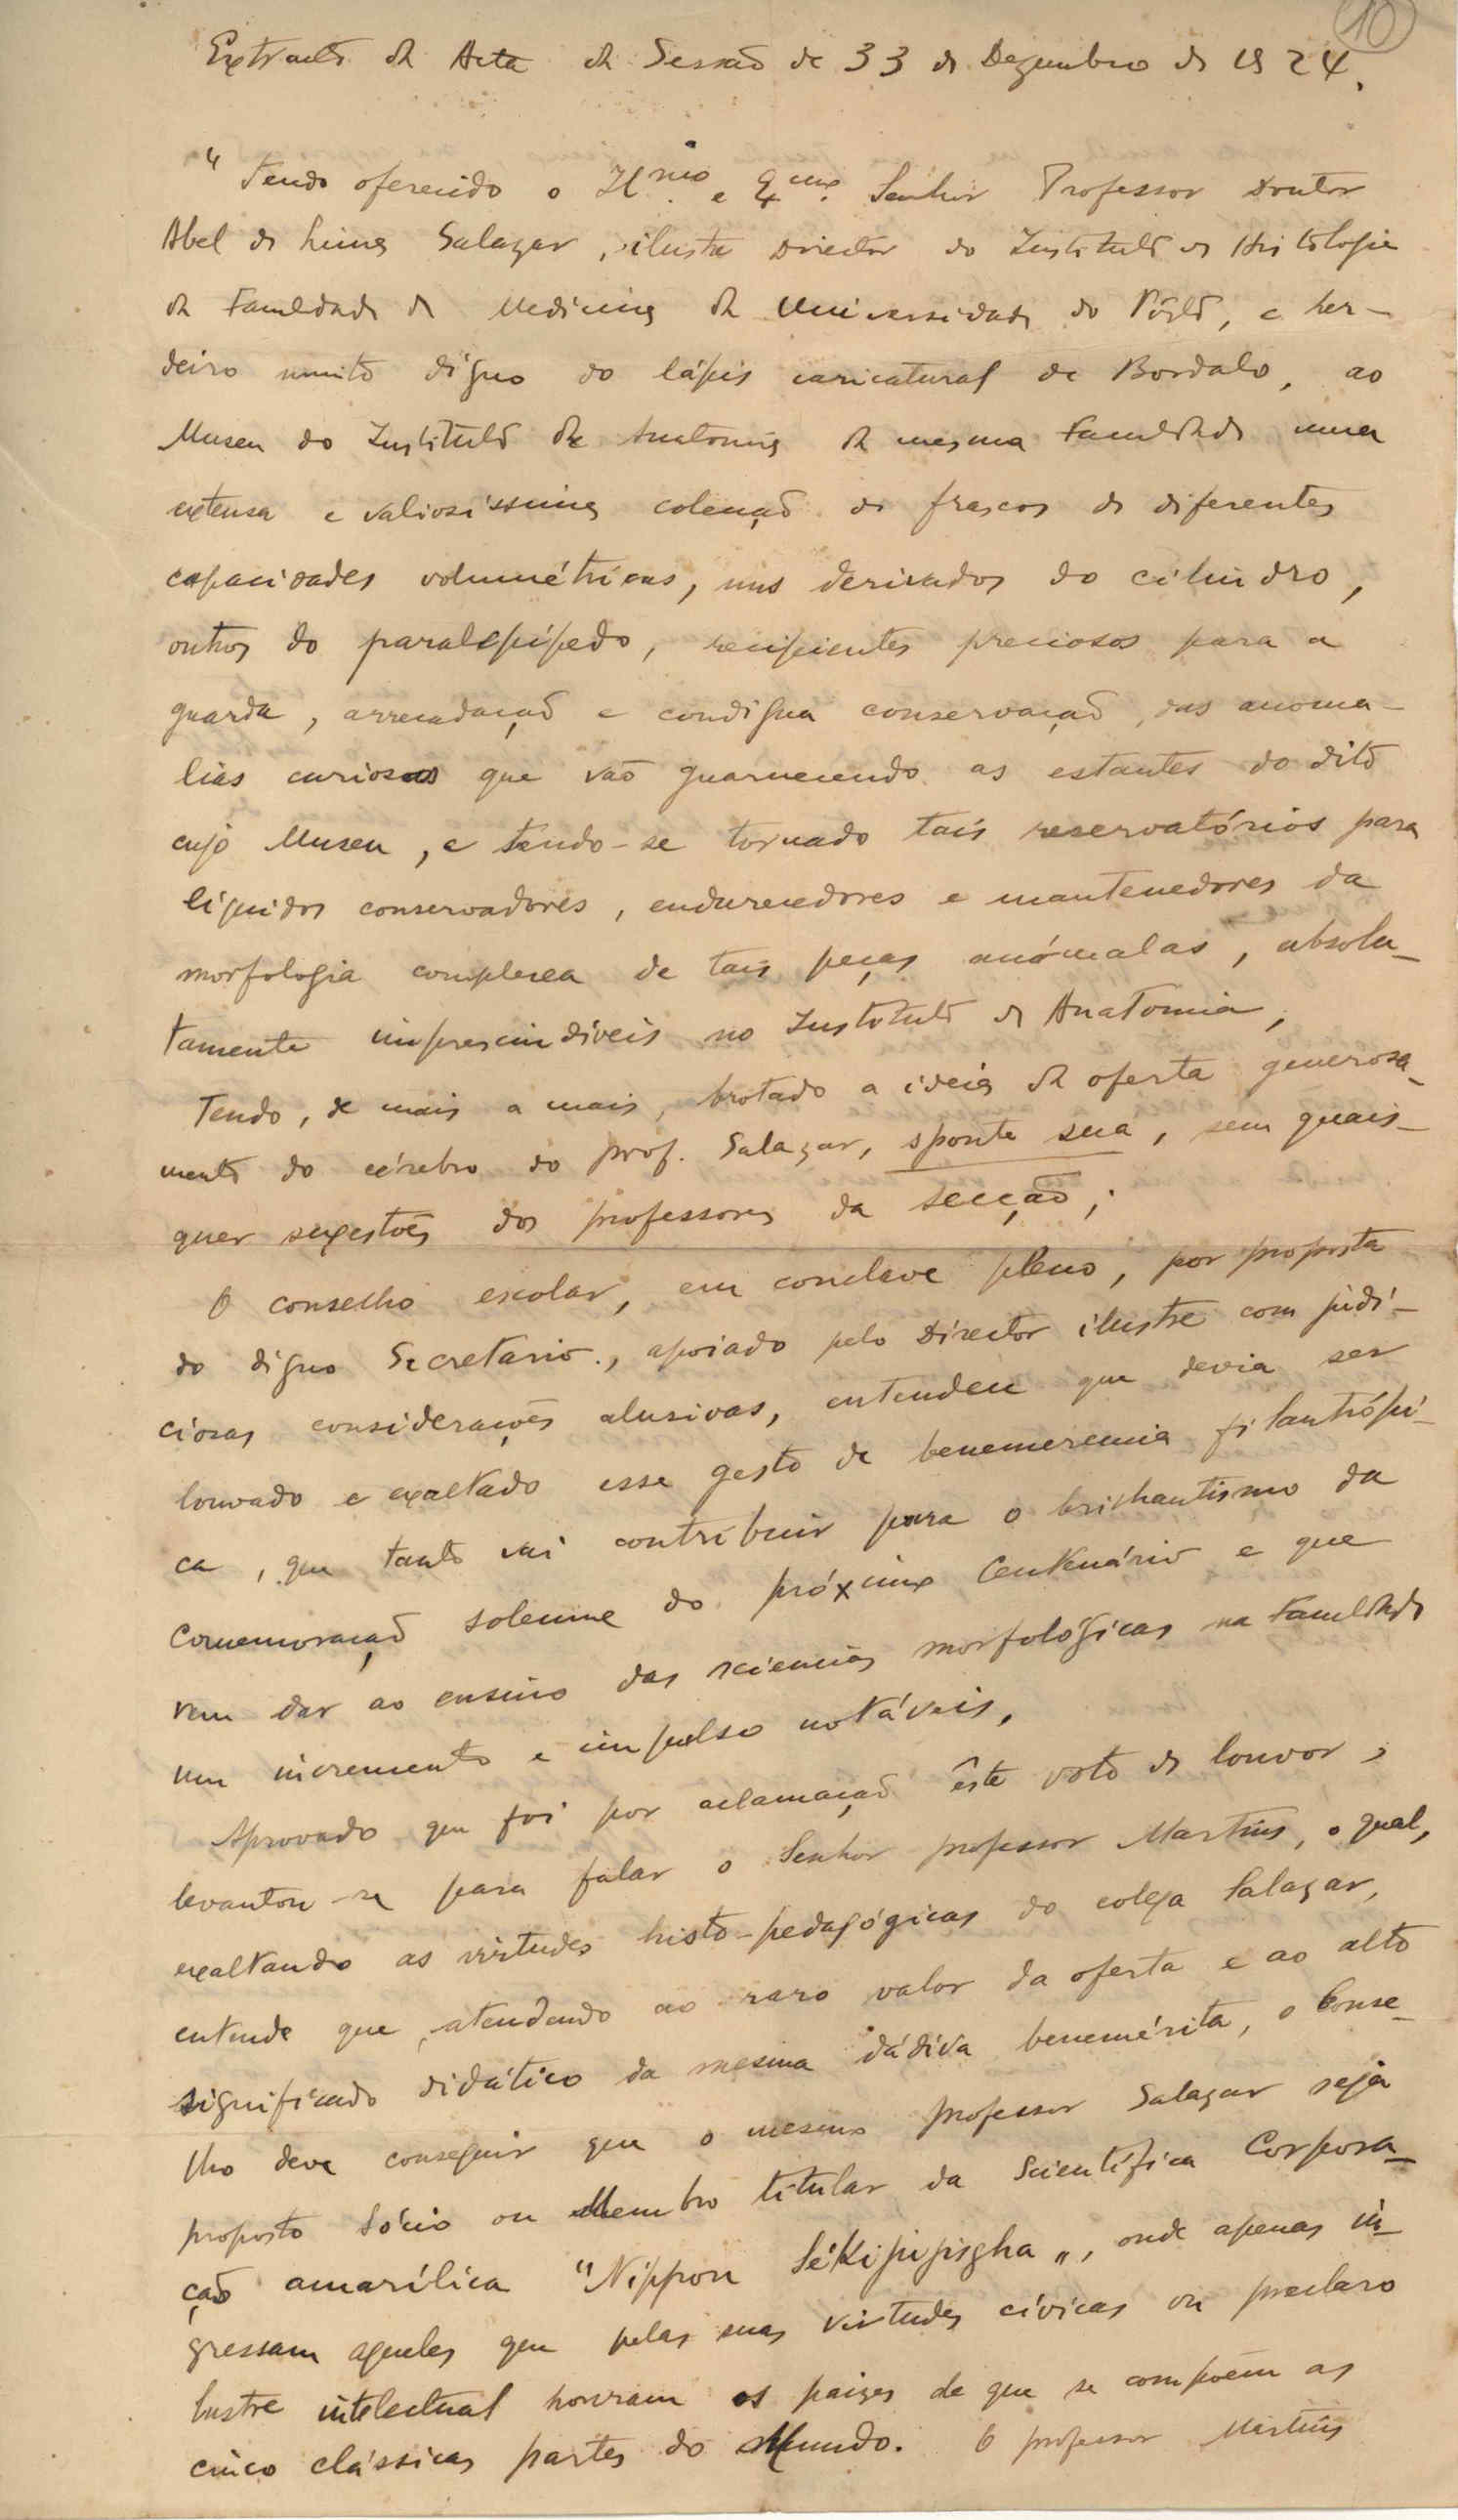 10
Extracto da Acta da Sessão de 33 de Dezembro de 1924.
"Tendo oferecido o Il.mo e Ex.mo Senhor Professor Doutor
Abel de Lima Salazar, ilustre Director do Instituto de Histologia
da Faculdade de Medicina da Universidade do Pôrto, e her-
deiro muito digno do lápis caricatural de Bordalo, ao
Museu do Instituto de Anatomia da mesma Faculdade uma
extensa e valiosíssima colecção de frascos de diferentes
capacidades volumétricas, uns derivados do cilindro,
outros do paralepípedo, recipientes preciosos para a
guarda, arrecadação e condigna conservação, das anoma-
lias curiosas que vão guarnecendo as estantes do dito
cujo Museu, e tendo-se tornado tais reservatórios para
líquidos conservadores, endurecedores e mantenedores da
morfologia complexa de tais peças anómalas, absolu-
tamente imprescindíveis no Instituto de Anatomia;
Tendo, de mais a mais, brotado a ideia da oferta generosa-
mente do cérebro do prof. Salazar, sponte sua, sem quais-
quer sugestões dos professores da secção;
O conselho escolar, em conclave pleno, por proposta
do digno Secretario., apoiado pelo Director ilustre com judi-
ciosas considerações alusivas, entendeu que devia ser
louvado e exaltado esse gesto de benemerencia filantrópi-
ca, que tanto vai contribuir para o brilhantismo da
comemoração solemne do próximo Centenário e que
vem dar ao ensino das sciencias morfológicas na Faculdade
um incremento e impulso notáveis.
Aprovado que foi por aclamação êste voto de louvor,
levantou-se para falar o Senhor professor Martins, o qual,
exaltando as virtudes histo-pedagógicas do colega Salazar,
entende que, atendendo ao raro valor da oferta e ao alto
significado didático da mesma dádiva benemérita, o Conse-
lho deve conseguir que o mesmo professor Salazar seja
proposto Sócio ou Membro titular da Scientífica Corpora-
ção amarílica "Nippon Sékipipisgha", onde apenas in-
gressam aqueles que pelas suas virtudes cívicas ou preclaro
lustre intelectual honram os paizes de que se compoem as
cinco clássicas partes do Mundo. O professor Martins